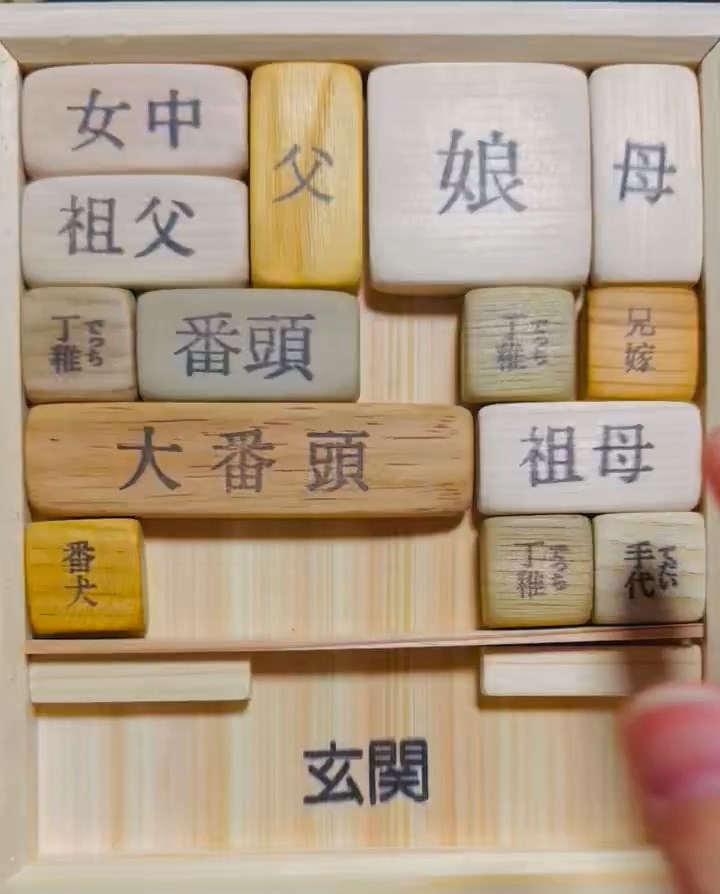 女中
父
娘
母
祖父
丁稚 でっち
番頭
丁稚 でっち
兄嫁
大番頭
祖母
番犬
丁稚 でっち
手代 てだい
玄関